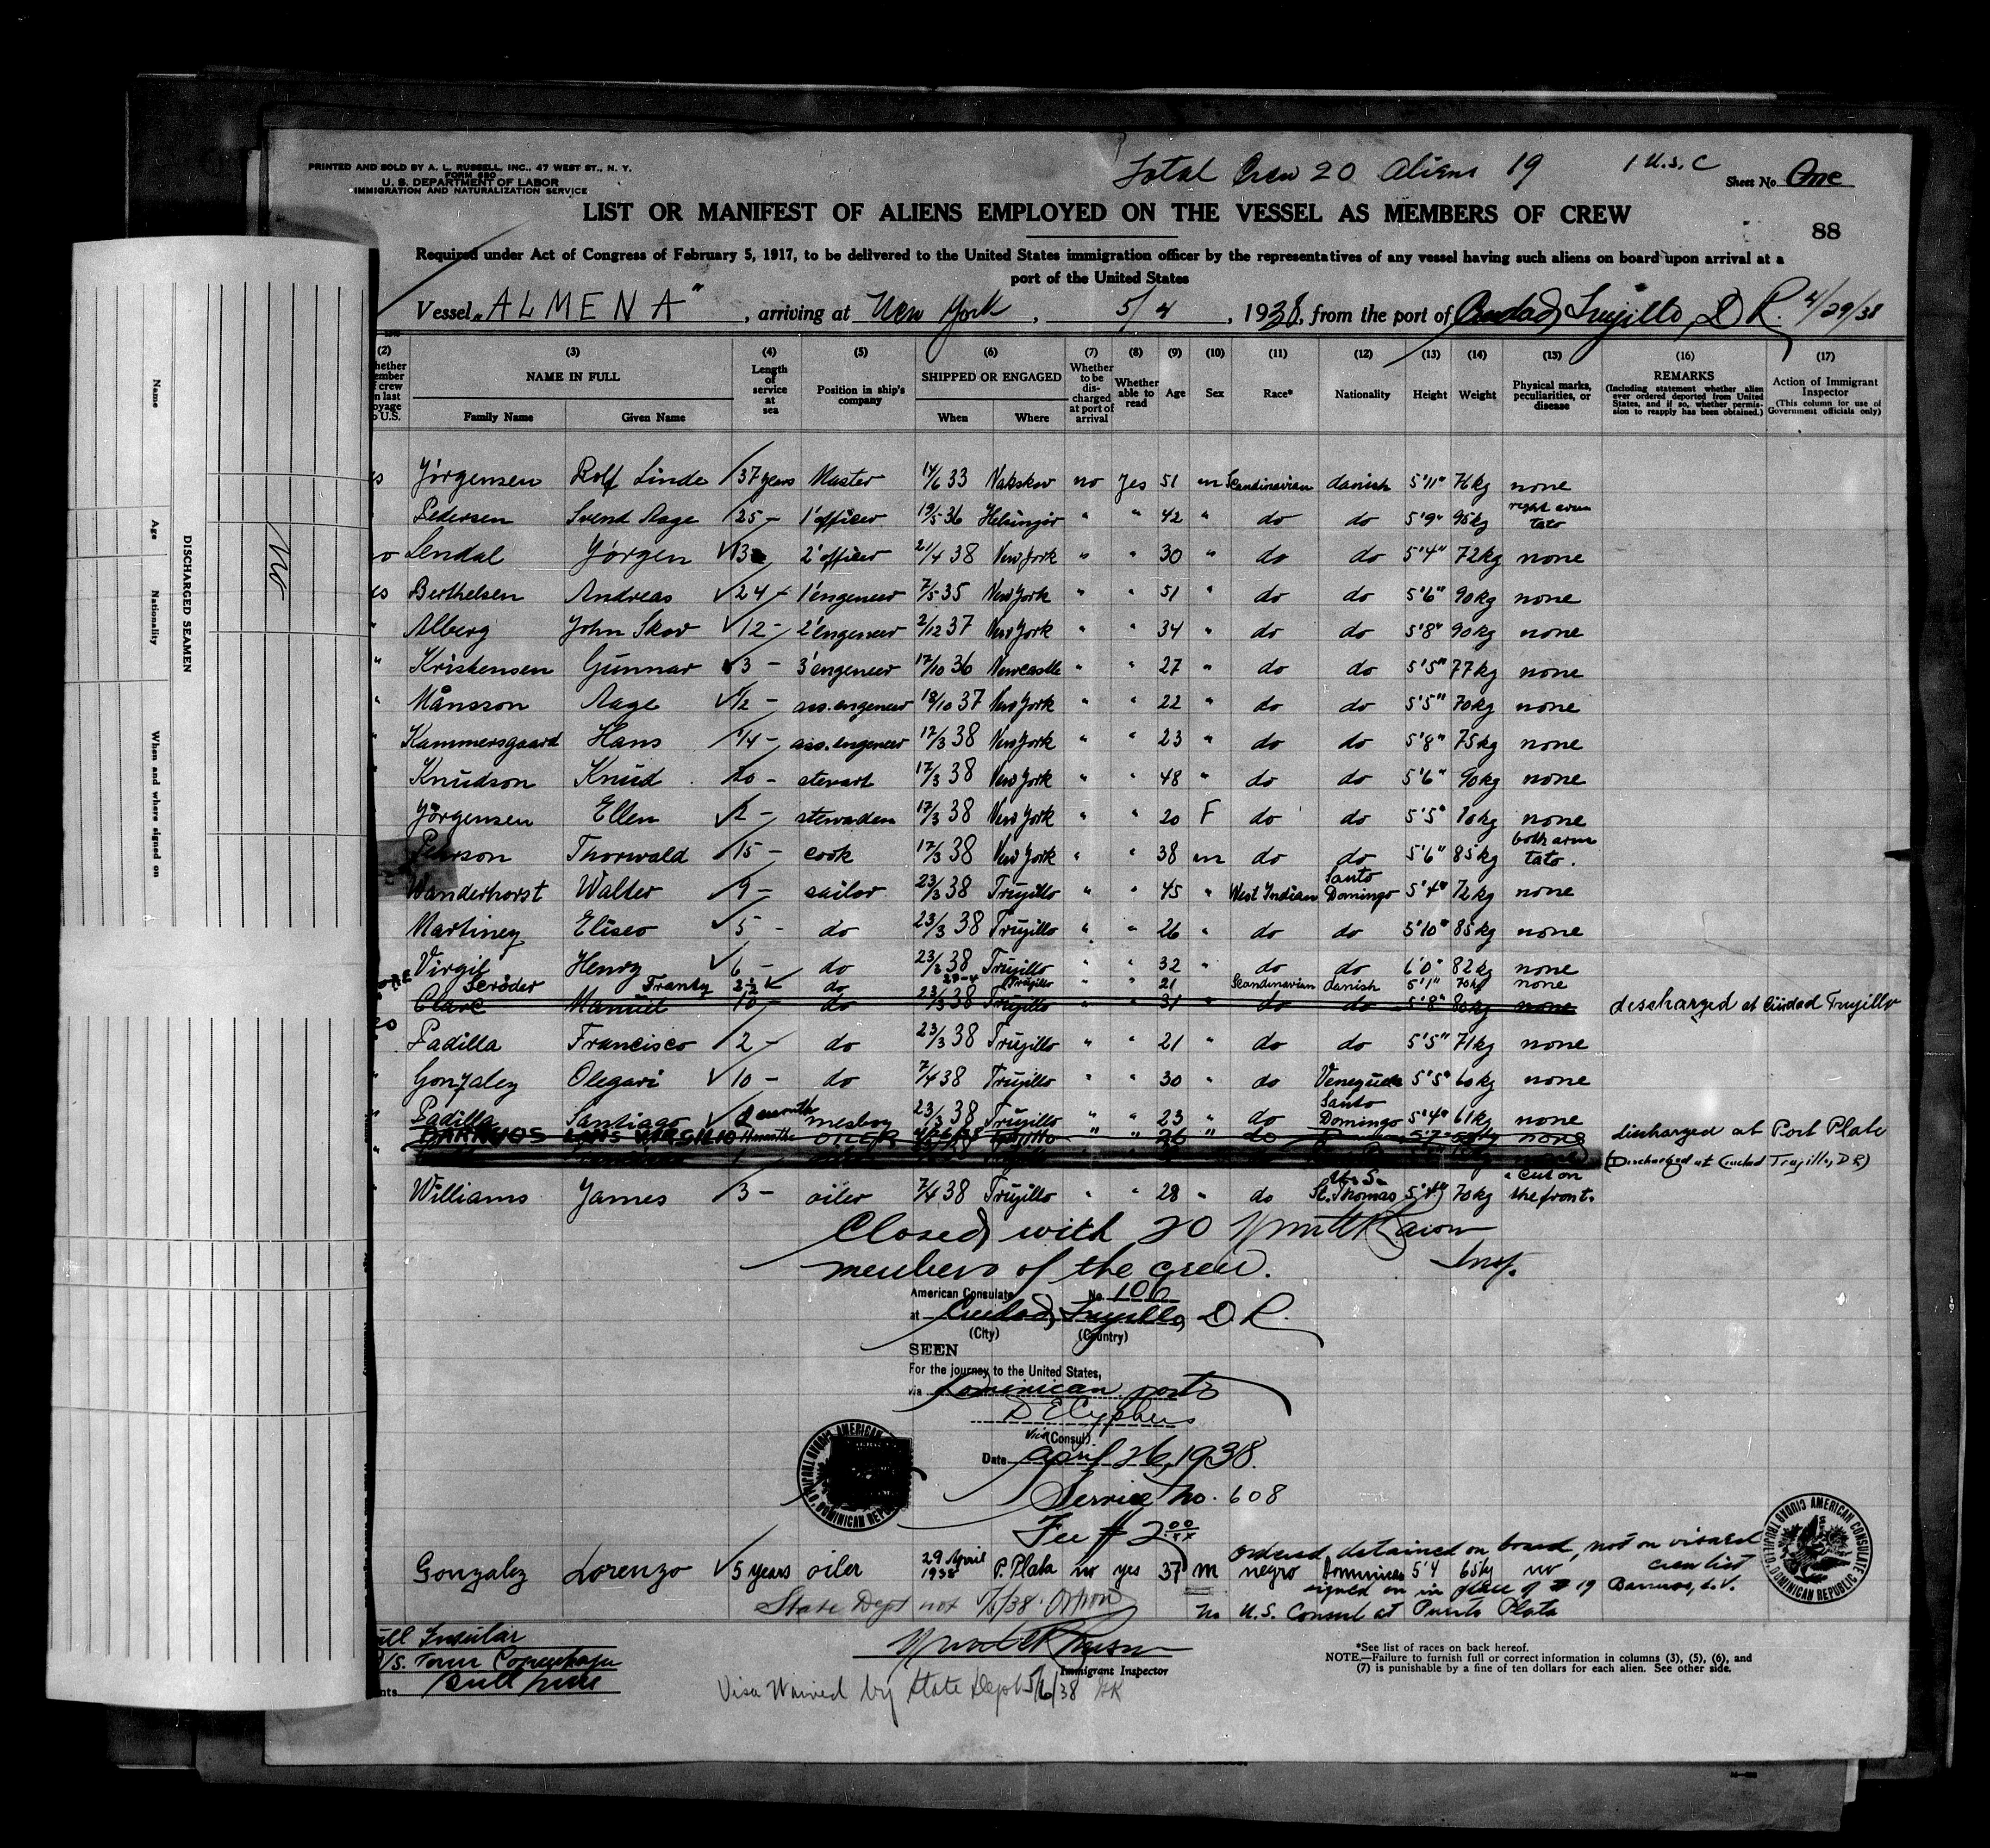 PRINTED AND SOLD BY A. L. RUSSELL, INC., 47 WEST ST., N. Y.
FORM 680
U. S. DEPARTMENT OF LABOR
IMMIGRATION AND NATURALIZATION SERVICE
Total Crew 20 Aliens 19 1 U.S.C
Sheet No. One
LIST OR MANIFEST OF ALIENS EMPLOYED ON THE VESSEL AS MEMBERS OF CREW
88
Required under Act of Congress of February 5, 1917, to be delivered to the United States immigration officer by the representatives of any vessel having such aliens on board upon arrival at a
port of the United States
Vessel "ALMENA", arriving at New York, 5/4, 1938, from the port of Ciudad Trujillo, D.R. 4/29/38
(2) (3) (4) (5) (6) (7) (8) (9) (10) (11) (12) (13) (14) (15) (16) (17)
NAME IN FULL
Family Name Given Name
Length of service at sea
Position in ship's company
SHIPPED OR ENGAGED
When Where
Whether to be discharged at port of arrival
Whether able to read
Age
Sex
Race*
Nationality
Height
Weight
Physical marks, peculiarities, or disease
REMARKS
(Including statement whether alien ever ordered deported from United States, and if so, whether permission to reapply has been obtained.)
Action of Immigrant Inspector
(This column for use of Government officials only)
Jörgensen Rolf Linde 37 years Master 14/6 33 Nakskov no yes 51 m Scandinavian danish 5'11" 76kg none
Pedersen Svend Aage 25 - 1'officer 19/5 36 Helsingör " " 42 " do do 5'9" 95kg right arm tato
Lendal Jörgen 13 2'officer 21/4 38 New York " " 30 " do do 5'4" 72kg none
Berthelsen Andreas 24 - 1'engeneer 7/5 35 New York " " 51 " do do 5'6" 90kg none
Alberg John Skov 12 - 2'engeneer 2/12 37 New York " " 34 " do do 5'8" 90kg none
Kristensen Gunnar 3 - 3'engeneer 17/10 36 Newcastle " " 27 " do do 5'5" 77kg none
Månsson Aage 1/2 - ass.engeneer 18/10 37 New York " " 22 " do do 5'5" 70kg none
Kammersgaard Hans 1/4 - ass.engeneer 17/3 38 New York " " 23 " do do 5'8" 75kg none
Knudson Knud 20 - stevart 17/3 38 New York " " 48 " do do 5'6" 90kg none
Jörgensen Ellen 2 - 17/3 38 New York " " 20 F do do 5'5" none
Thorwald 15 - cook 17/3 38 New York " " 38 m do do 5'6" 85kg both arm tato.
Wanderhorst Walter 9 - sailor 23/3 38 Trujillo " " 45 " West Indian Santo Domingo 5'4" 72kg none
Martinez Eliseo 5 - do 23/3 38 Trujillo " " 26 " do do 5'10" 85kg none
Virgil Henry 6 - do 23/3 38 Trujillo " " 32 " do do 6'0" 82kg none
Scröder Frantz 2½ do Trujillo " " 21 Scandinavian danish 5'1" 70kg none
Clare Manuel 10 - do 23/3 38 Trujillo " " 31 " do do 5'8" 80kg none discharged at Ciudad Trujillo
Padilla Francisco 2 - do 23/3 38 Trujillo " " 21 " do do 5'5" 71kg none
Gonzalez Olegari 10 - do 7/4 38 Trujillo " " 30 " do Venezuela 5'5" 60kg none
Padilla Santiago month mesboy 23/3 38 Trujillo " " 23 " do Santo Domingo 5'4" 61kg none
BARRUOS LUIS VIRGILIO months OILER " " 26 " do none discharged at Port Plate
(Discharged at Ciudad Trujillo, D.R.)
Williams James 3 - oiler 7/4 38 Trujillo " " 28 " do U.S. St. Thomas 70kg cut on the front.
Closed with 20
members of the crew.
Insp.
American Consulate No. 106
at Ciudad Trujillo, D.R.
(City) (Country)
SEEN
For the journey to the United States,
via Dominican ports
Vice (Consul)
Date April 26, 1938.
Service No. 608
Fee $ 2.00
AMERICAN CONSULATE CIUDAD TRUJILLO, DOMINICAN REPUBLIC
ordered detained on board, not on visaed crew list
Gonzalez Lorenzo 5 years oiler 29 April 1938 P. Plata no yes 37 m negro Dominican 5'4 65kg no
signed on in place of # 19 Barruos, L.V.
no U.S. Consul at Puerto Plata
State Dept not
Immigrant Inspector
Visa Waived by State Dept 5/6/38
*See list of races on back hereof.
NOTE.—Failure to furnish full or correct information in columns (3), (5), (6), and
(7) is punishable by a fine of ten dollars for each alien. See other side.
Bull Line
DISCHARGED SEAMEN
Name Age Nationality When and where signed on